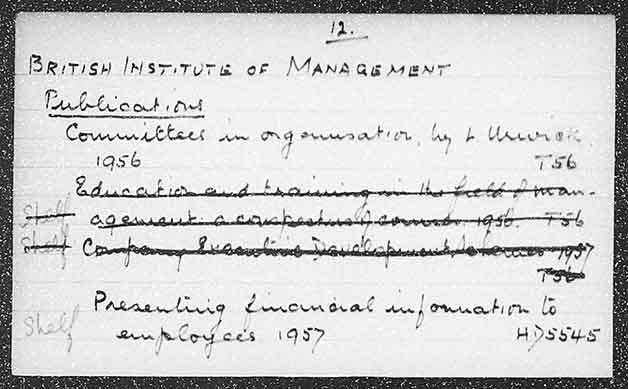 12.
BRITISH INSTITUTE OF MANAGEMENT
Publications
Committees in organisation, by L. Urwick.
1956 T56
Education and training in the field of man-
Shelf agement: a conspectus of courses. 1956. T56
Shelf Company Executive Development Schemes 1957
T56
Presenting financial information to
Shelf employees 1957 HD5545